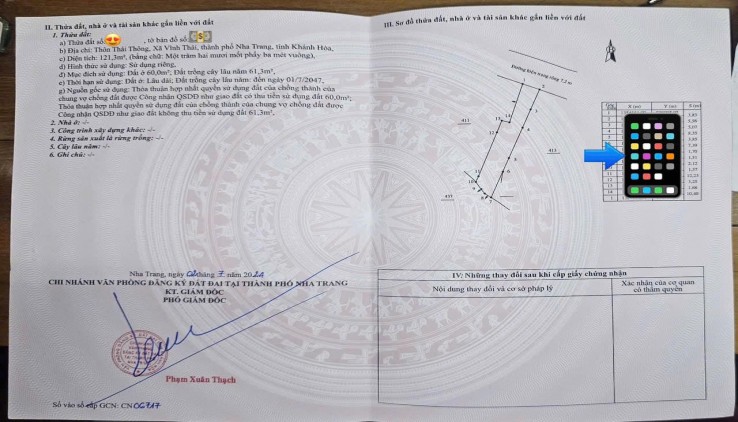 II. Thửa đất, nhà ở và tài sản khác gắn liền với đất
1. Thửa đất:
a) Thửa đất số , tờ bản đồ số
b) Địa chỉ: Thôn Thái Thông, Xã Vĩnh Thái, thành phố Nha Trang, tỉnh Khánh Hòa,
c) Diện tích: 121,3m², (bằng chữ: Một trăm hai mươi mốt phẩy ba mét vuông),
d) Hình thức sử dụng: Sử dụng riêng,
đ) Mục đích sử dụng: Đất ở 60,0m²; Đất trồng cây lâu năm 61,3m²,
e) Thời hạn sử dụng: Đất ở: Lâu dài; Đất trồng cây lâu năm: đến ngày 01/7/2047,
g) Nguồn gốc sử dụng: Thỏa thuận hợp nhất quyền sử dụng đất của chồng thành của
chung vợ chồng đất được Công nhận QSDĐ như giao đất có thu tiền sử dụng đất 60,0m²;
Thỏa thuận hợp nhất quyền sử dụng đất của chồng thành của chung vợ chồng đất được
Công nhận QSDĐ như giao đất không thu tiền sử dụng đất 61,3m².
2. Nhà ở: -/-
3. Công trình xây dựng khác: -/-
4. Rừng sản xuất là rừng trồng: -/-
5. Cây lâu năm: -/-
6. Ghi chú: -/-
Nha Trang, ngày tháng 7 năm
CHI NHÁNH VĂN PHÒNG ĐĂNG KÝ ĐẤT ĐAI TẠI THÀNH PHỐ NHA TRANG
KT. GIÁM ĐỐC
PHÓ GIÁM ĐỐC
Phạm Xuân Thạch
Số vào sổ cấp GCN: CN06717
III. Sơ đồ thửa đất, nhà ở và tài sản khác gắn liền với đất
Đường hiện trạng rộng
1
2
3
411
13
12
4
413
5
6
11
10
8
7
X (m) Y (m) S (m)
IV. Những thay đổi sau khi cấp giấy chứng nhận
Nội dung thay đổi và cơ sở pháp lý
Xác nhận của cơ quan
có thẩm quyền